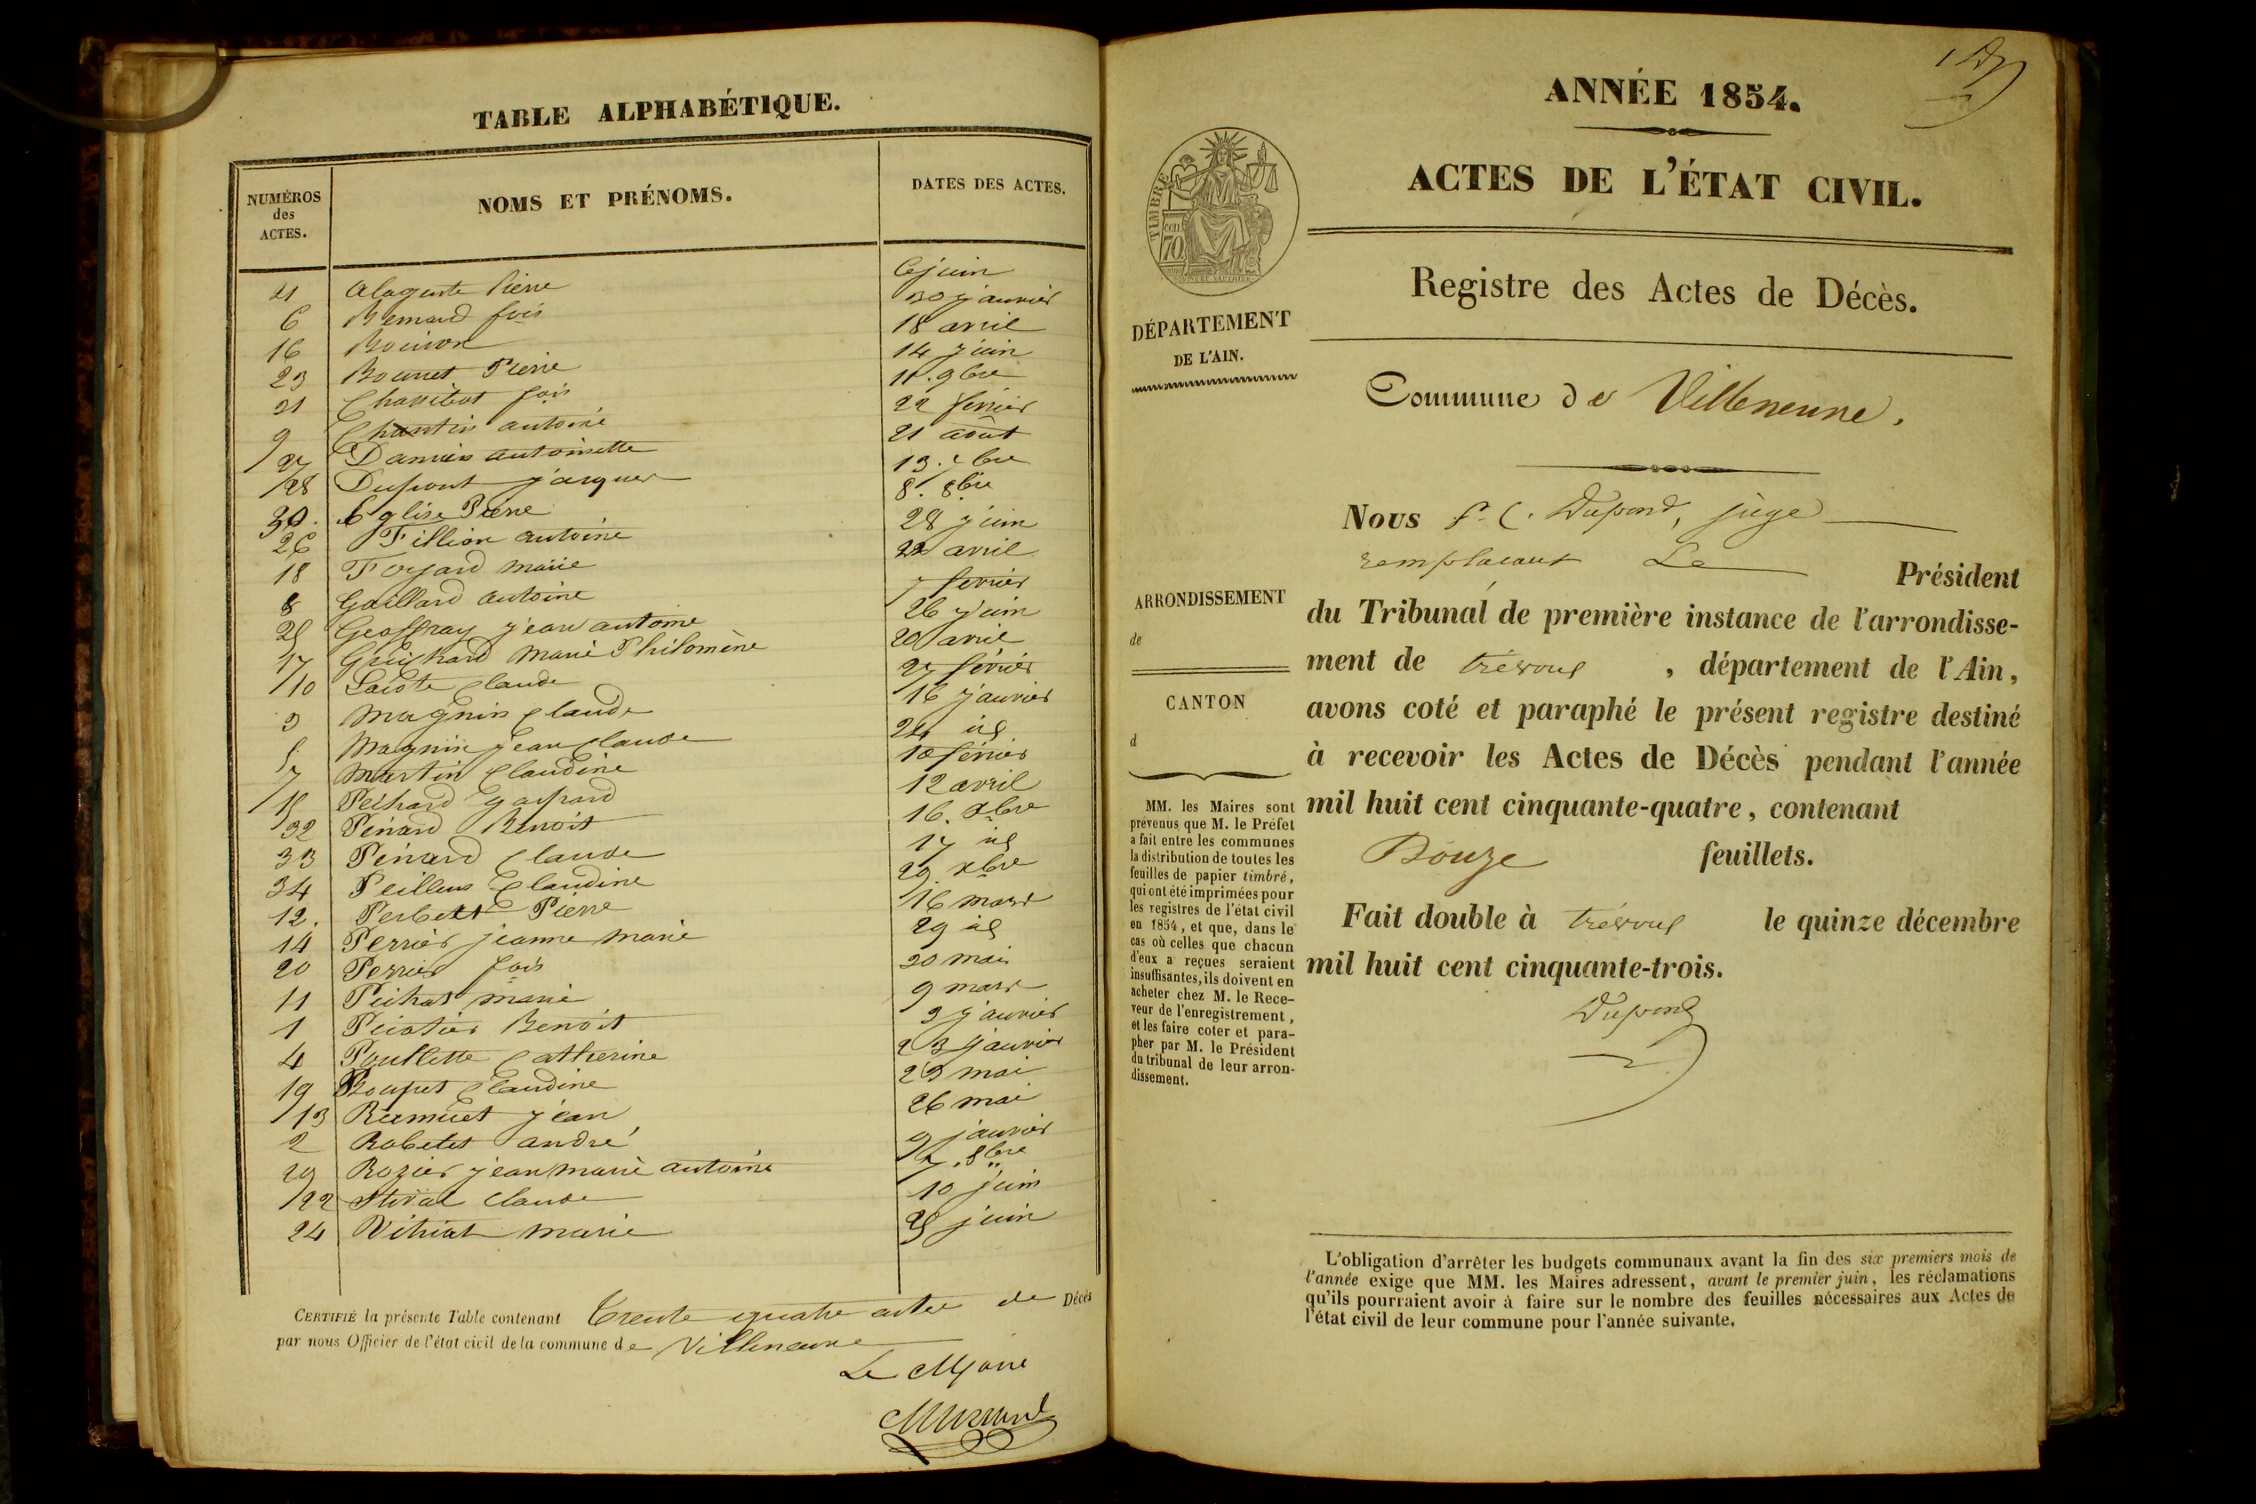 TABLE ALPHABÉTIQUE.
NUMÉROS des ACTES.
NOMS ET PRÉNOMS.
DATES DES ACTES.
Pierre 6 juin
6 Bernard fois 30 janvier
16 Bouvon 18 avril
23 Bounet Pierre 14 juin
fois 11. 9bre
9 Chantin antoine 22 fevrier
27 Damien antoinette 21 août
28 Dupont jacques 13. 7bre
30. Eglise Pierre 8. 8bre
26 Fillion antoine 28 juin
18 Foyard marie 22 avril
8 Gaillard antoine 7 fevrier
25 Geoffray jean antoine 26 juin
17 Guichard marie Philomène 20 avril
10 Lacote Claude 27 février
3 Magnin Claude 16 janvier
5 Magnin jean Claude 24 id
7 Martin Claudine 10 février
15 Pechard gaspard 12 avril
32 Pénard Benoit 16. Xbre
33 Pénard Claude 17 id
34 Peilleux Claudine 29. xbre
12. Perbet Pierre 16 mars
14 Perrier jeanne marie 29 id
20 Perrier fois 30 mai
11 Pichat marie 9 mars
1 Benoit 3 janvier
4 Poullette Catherine 23 janvier
19 Poupet Claudine 23 mai
13 jean 26 mai
2 Robelet andré 9 janvier
29 Rozier jean marie antoine 7. 8bre
22 Claude 10 juin
24 marie 25 juin
CERTIFIÉ la présente Table contenant Trente quatre actes de Décès
par nous Officier de l'état civil de la commune de Villeneuve
Le Maire
ANNÉE 1854.
ACTES DE L'ÉTAT CIVIL.
TIMBRE
70
DÉPARTEMENT
DE L'AIN.
Registre des Actes de Décès.
Commune de Villeneuve.
Nous f. C. Dupond, juge
remplacant Le Président
ARRONDISSEMENT
de
CANTON
d
du Tribunal de première instance de l'arrondisse-
ment de trévoux, département de l'Ain,
avons coté et paraphé le présent registre destiné
à recevoir les Actes de Décès pendant l'année
mil huit cent cinquante-quatre, contenant
Douze feuillets.
Fait double à trévoux le quinze décembre
mil huit cent cinquante-trois.
Dupond
MM. les Maires sont
prévenus que M. le Préfet
a fait entre les communes
la distribution de toutes les
feuilles de papier timbré,
qui ont été imprimées pour
les registres de l'état civil
en 1854, et que, dans le
cas où celles que chacun
d'eux a reçues seraient
insuffisantes, ils doivent en
acheter chez M. le Rece-
veur de l'enregistrement,
et les faire coter et para-
pher par M. le Président
du tribunal de leur arron-
dissement.
L'obligation d'arrêter les budgets communaux avant la fin des six premiers mois de
l'année exige que MM. les Maires adressent, avant le premier juin, les réclamations
qu'ils pourraient avoir à faire sur le nombre des feuilles nécessaires aux Actes de
l'état civil de leur commune pour l'année suivante.